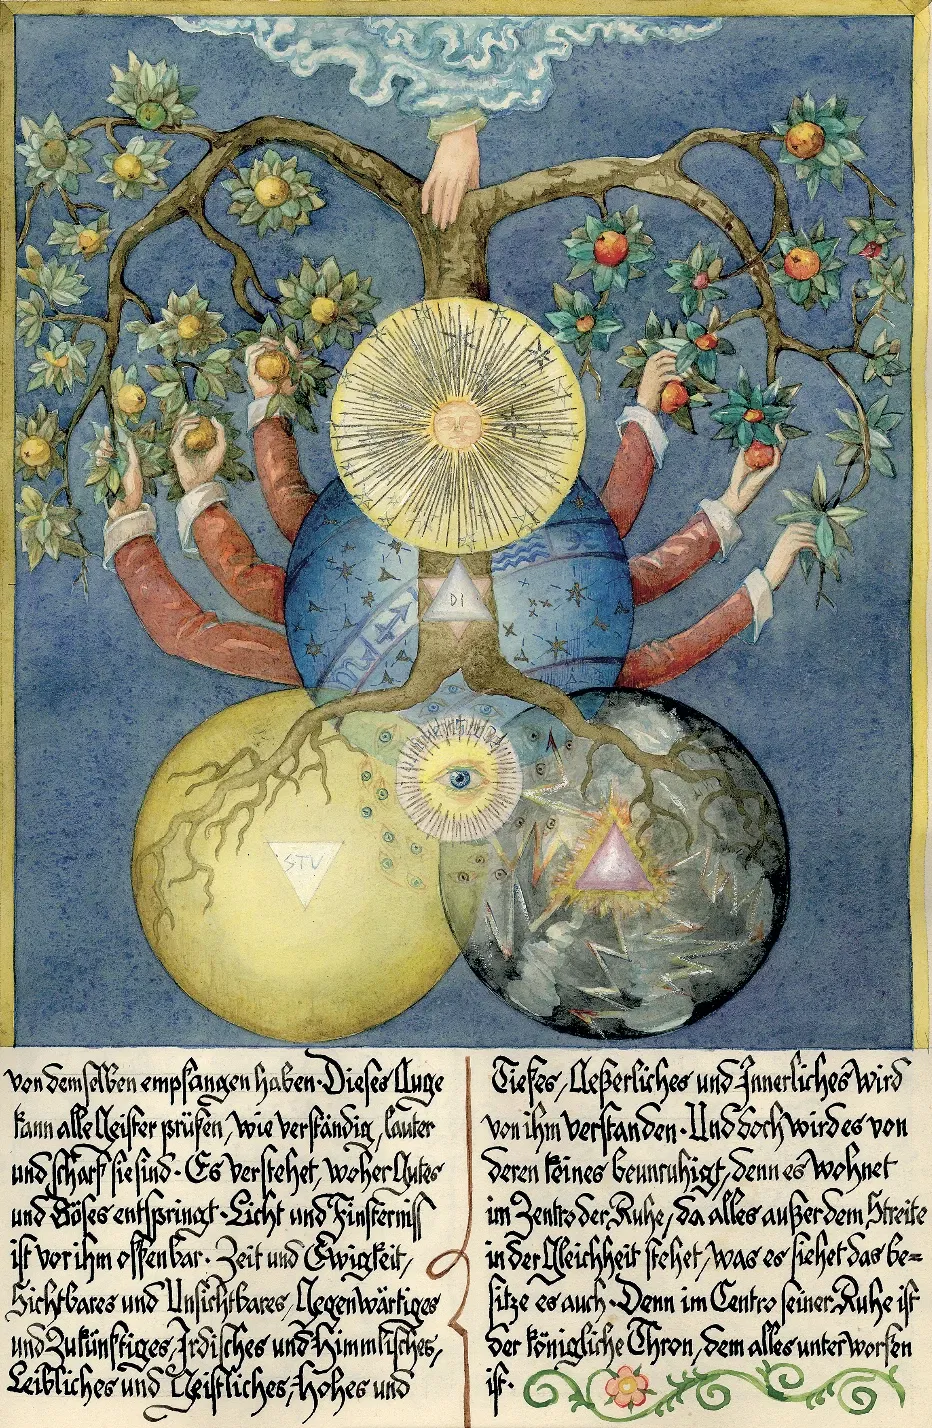 DI
STU
von demselben empfangen haben. Dieses Auge
kann alle Geister prüfen, wie verständig, lauter
und scharf sie sind. Es verstehet, woher Gutes
und Böses entspringt. Licht und Finsterniß
ist vor ihm offenbar. Zeit und Ewigkeit,
Sichtbares und Unsichtbares, Gegenwärtiges
und Zukünftiges, Irdisches und Himmlisches,
Leibliches und Geistliches, Hohes und
Tiefes, Aeßerliches und Innerliches wird
von ihm verstanden. Und doch wird es von
deren keines beunruhigt, denn es wohnet
im Zentro der Ruhe, da alles außer dem Streite
in der Gleichheit stehet, was es siehet das be=
sitze es auch. Denn im Centro seiner Ruhe ist
der königliche Thron, dem alles unterworfen
ist.